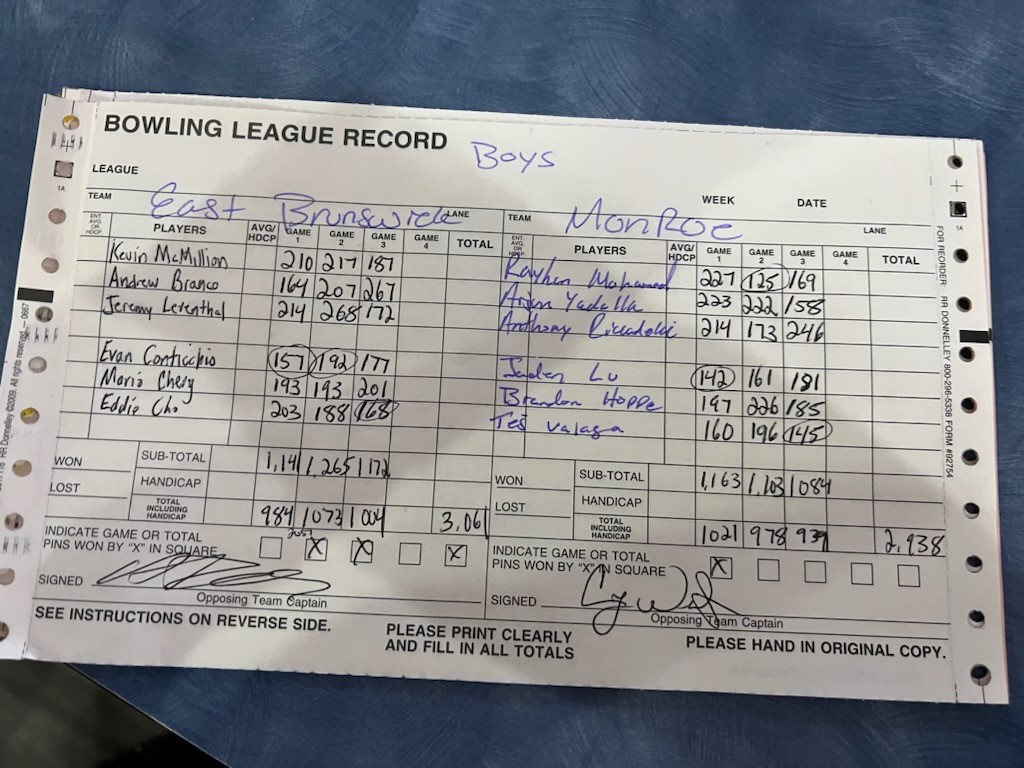 BOWLING LEAGUE RECORD Boys
LEAGUE
WEEK DATE
TEAM East Brunswick LANE TEAM MonRoe LANE
ENT. AVG. OR HDCP PLAYERS AVG/HDCP GAME 1 GAME 2 GAME 3 GAME 4 TOTAL
Kevin McMillion 210 217 187
Andrew Branco 164 207 267
Jeremy Lerenthal 214 268 172
Evan Conticchio 157 192 177
Mario Chery 193 193 201
Eddie Cho 203 188 168
SUB-TOTAL 1,141 1,265 1172
WON
HANDICAP
LOST
TOTAL INCLUDING HANDICAP 984 1073 1004 3,061
2057
INDICATE GAME OR TOTAL PINS WON BY "X" IN SQUARE X X X
SIGNED
Opposing Team Captain
ENT. AVG. OR HDCP PLAYERS AVG/HDCP GAME 1 GAME 2 GAME 3 GAME 4 TOTAL
Rayhan Mohamed 227 125 169
Arjun Yadalla 223 222 158
Anthony 214 173 246
Jaden Lu 142 161 181
Brandon Hoppe 197 226 185
Tej 160 196 145
SUB-TOTAL 1,163 1,103 1084
WON
HANDICAP
LOST
TOTAL INCLUDING HANDICAP 1021 978 939 2,938
INDICATE GAME OR TOTAL PINS WON BY "X" IN SQUARE X
SIGNED
Opposing Team Captain
SEE INSTRUCTIONS ON REVERSE SIDE.
PLEASE PRINT CLEARLY
AND FILL IN ALL TOTALS
PLEASE HAND IN ORIGINAL COPY.
FOR REORDER: RR DONNELLEY 800-296-5338 FORM #92754
RR Donnelley ©2009. All rights reserved. — 0667
1A
1A